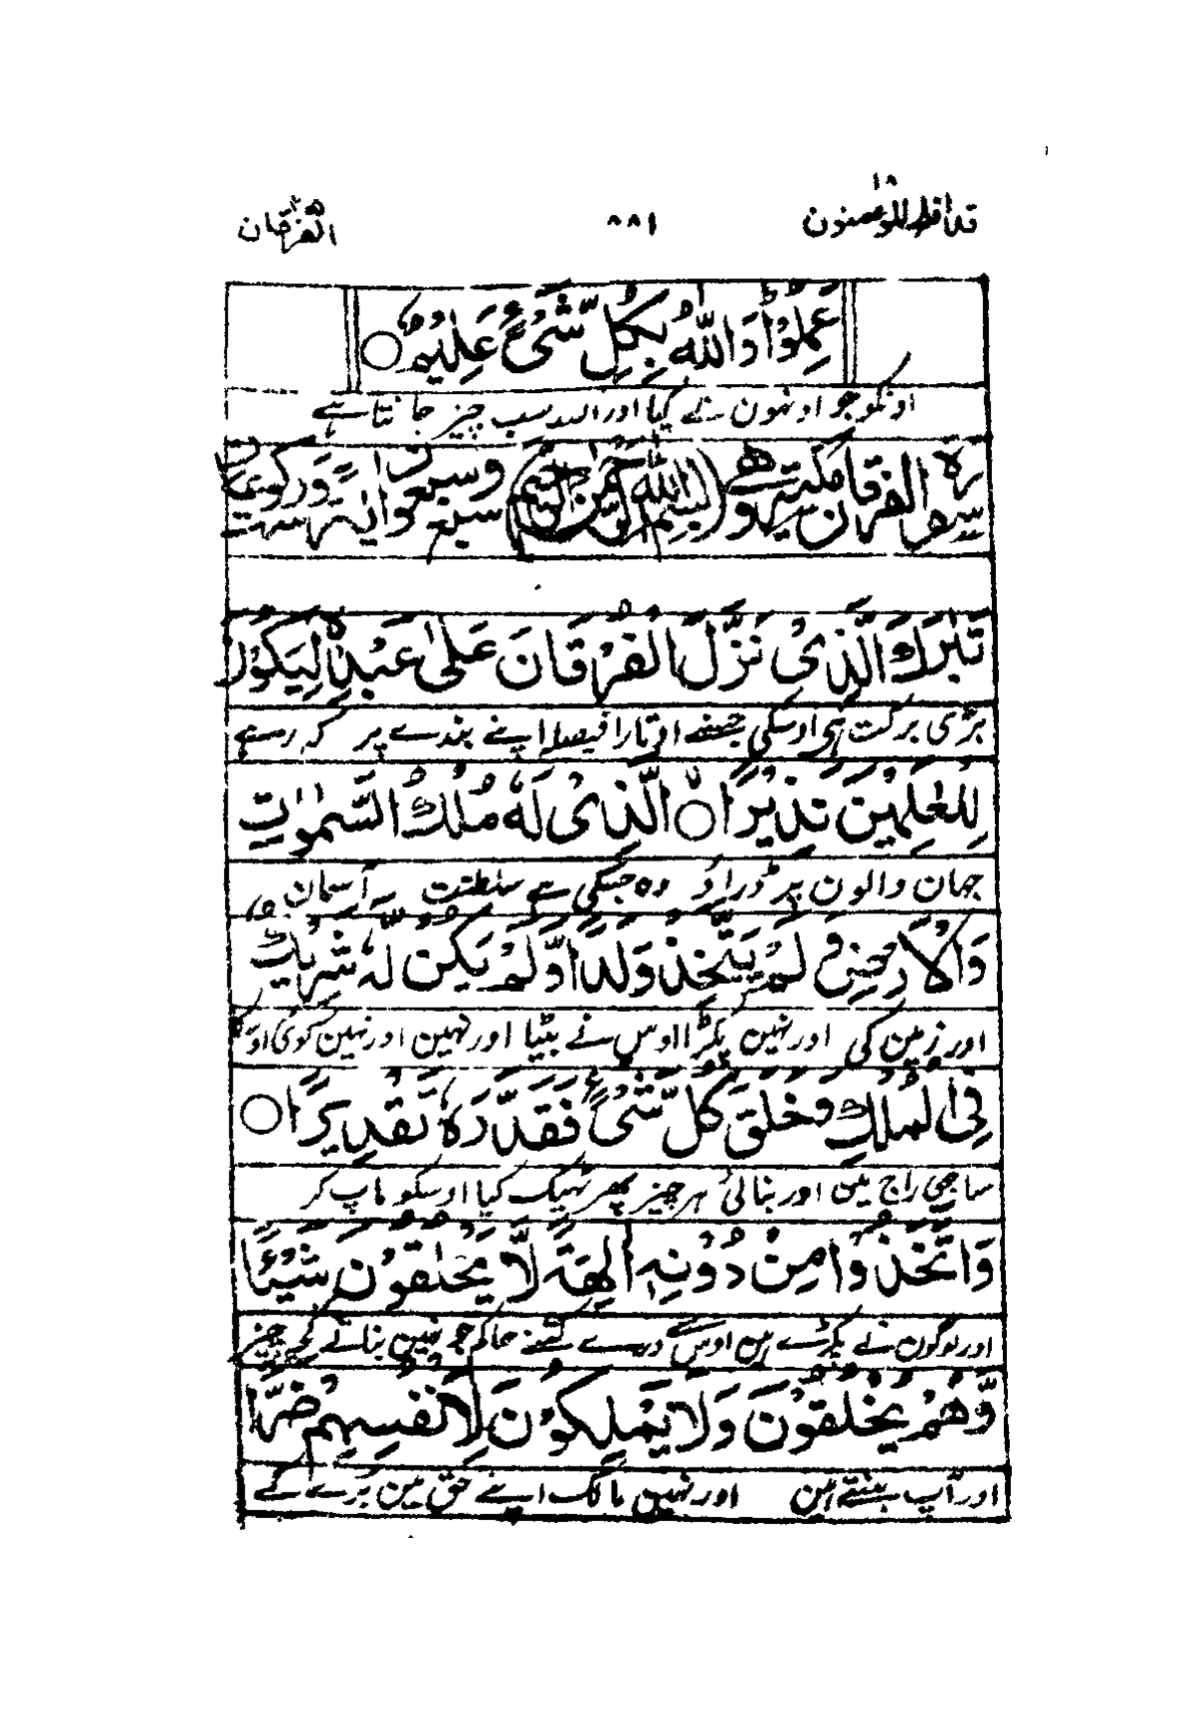 قد افلح المؤمنون ١٨ ٨٨١ الفرقان ٢٥
عَمِلُوْا وَاللّٰهُ بِكُلِّ شَيْءٍ عَلِيْمٌ ○
اونکو جو اونہون نے کیا اور اللہ سب چیز جانتا ہے
سورة الفرقان مكية وهي (بسم الله الرحمن الرحيم) سبع وسبعون اية وست ركوعات
تَبٰرَكَ الَّذِىْ نَزَّلَ الْفُرْقَانَ عَلٰى عَبْدِهٖ لِيَكُوْنَ
بڑی برکت ہی اوسکی جسنے اوتارا فیصلا اپنے بندے پر کہ رہے
لِلْعٰلَمِيْنَ نَذِيْرًا ○ الَّذِىْ لَهٗ مُلْكُ السَّمٰوٰتِ
جہان والون پر ڈراؤ وہ جسکی ہے سلطنت آسمان
وَالْاَرْضِ وَ لَمْ يَتَّخِذْ وَلَدًا وَّلَمْ يَكُنْ لَّهٗ شَرِيْكٌ
اور زمین کی اور نہین پکڑا اوس نے بیٹا اور نہین اور نہین کوئی اوسکا
فِى الْمُلْكِ وَخَلَقَ كُلَّ شَىْءٍ فَقَدَّرَهٗ تَقْدِيْرًا ○
ساجھی راج مین اور بنائی ہر چیز پھر ٹھیک کیا اوسکو ماپ کر
وَاتَّخَذُوْا مِنْ دُوْنِهٖ اٰلِهَةً لَّا يَخْلُقُوْنَ شَيْئًا
اور لوگون نے پکڑے ہین اوس سے ورے کتنے حاکم جو نہین بناتے کچھ چیز
وَّهُمْ يُخْلَقُوْنَ وَلَا يَمْلِكُوْنَ لِاَنْفُسِهِمْ ضَرًّا
اور آپ بنتے ہین اور نہین مالک اپنے حق مین برے کے